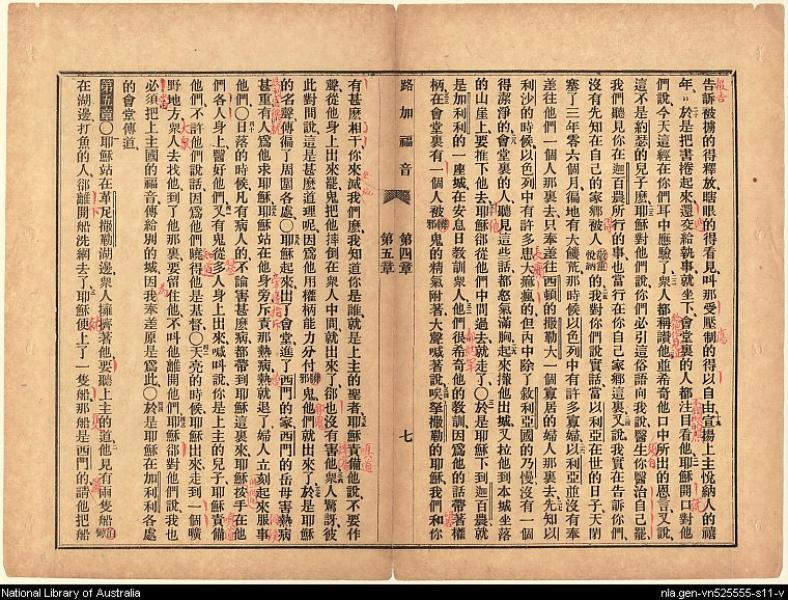 告訴被擄的得釋放瞎眼的得看見叫那受壓制的得以自由宣揚上主悅納人的禧
年於是把書捲起來還交給執事就坐下會堂裏的人都注目看他耶穌開口對他
們說今天這經在你們耳中應驗了衆人都稱讚他並希奇他口中所出的恩言又說
這不是約瑟的兒子麼耶穌對他們說你們必引這俗語向我說醫生你醫治自己罷
我們聽見你在迦百農所行的事也當行在你自己家鄉裏又說我實在告訴你們
沒有先知在自己的家鄉被人悅納的我對你們說實話當以利亞在世的日子天閉
塞了三年零六個月徧地有大饑荒那時候以色列中有許多寡婦以利亞並沒有奉
差往他們一個人那裏去只奉差往西頓的撒勒大一個寡居的婦人那裏去先知以
利沙的時候以色列中有許多患大痲瘋的但內中除了敘利亞國的乃慢沒有一個
得潔淨的會堂裏的人聽見這些話都怒氣滿胸起來攆他出城又拉他到本城坐落
的山崖上要推下他去耶穌卻從他們中間過去就走了○於是耶穌下到迦百農就
是加利利的一座城在安息日教訓衆人他們很希奇他的教訓因爲他的話帶著權
柄在會堂裏有一個人被邪鬼的精氣附著大聲喊著說唉拏撒勒的耶穌我們和你
路加福音 第四章 第五章 七
有甚麼相干你來滅我們麼我知道你是誰就是上主的聖者耶穌責備他說不要作
聲從他身上出來罷鬼把他摔倒在衆人中間就出來了卻也沒有害他衆人驚訝彼
此對問說這是甚麼道理呢因爲他用權柄能力分付邪鬼他們就出來了於是耶穌
的名聲傳徧了周圍各處○耶穌起來出了會堂進了西門的家西門的岳母害熱病
甚重有人爲他求耶穌耶穌站在他身旁斥責那熱病熱就退了婦人立刻起來服事
他們○日落的時候凡有病人的不論害甚麼病都帶到耶穌這裏來耶穌按手在他
們各人身上醫好他們又有鬼從多人身上出來喊叫說你是上主的兒子耶穌責備
他們不許他們說話因爲他們曉得他是基督○天亮的時候耶穌出來走到一個曠
野地方衆人去找他到了他那裏要留住他不叫他離開他們耶穌卻對他們說我也
必須把上主國的福音傳給別的城因我奉差原是爲此○於是耶穌在加利利各處
的會堂傳道
第五章○耶穌站在革尼撒勒湖邊衆人擁擠著他要聽上主的道他見有兩隻船
在湖邊打魚的人卻離開船洗網去了耶穌便上了一隻船那船是西門的請他把船
National Library of Australia
nla.gen-vn525555-s11-v